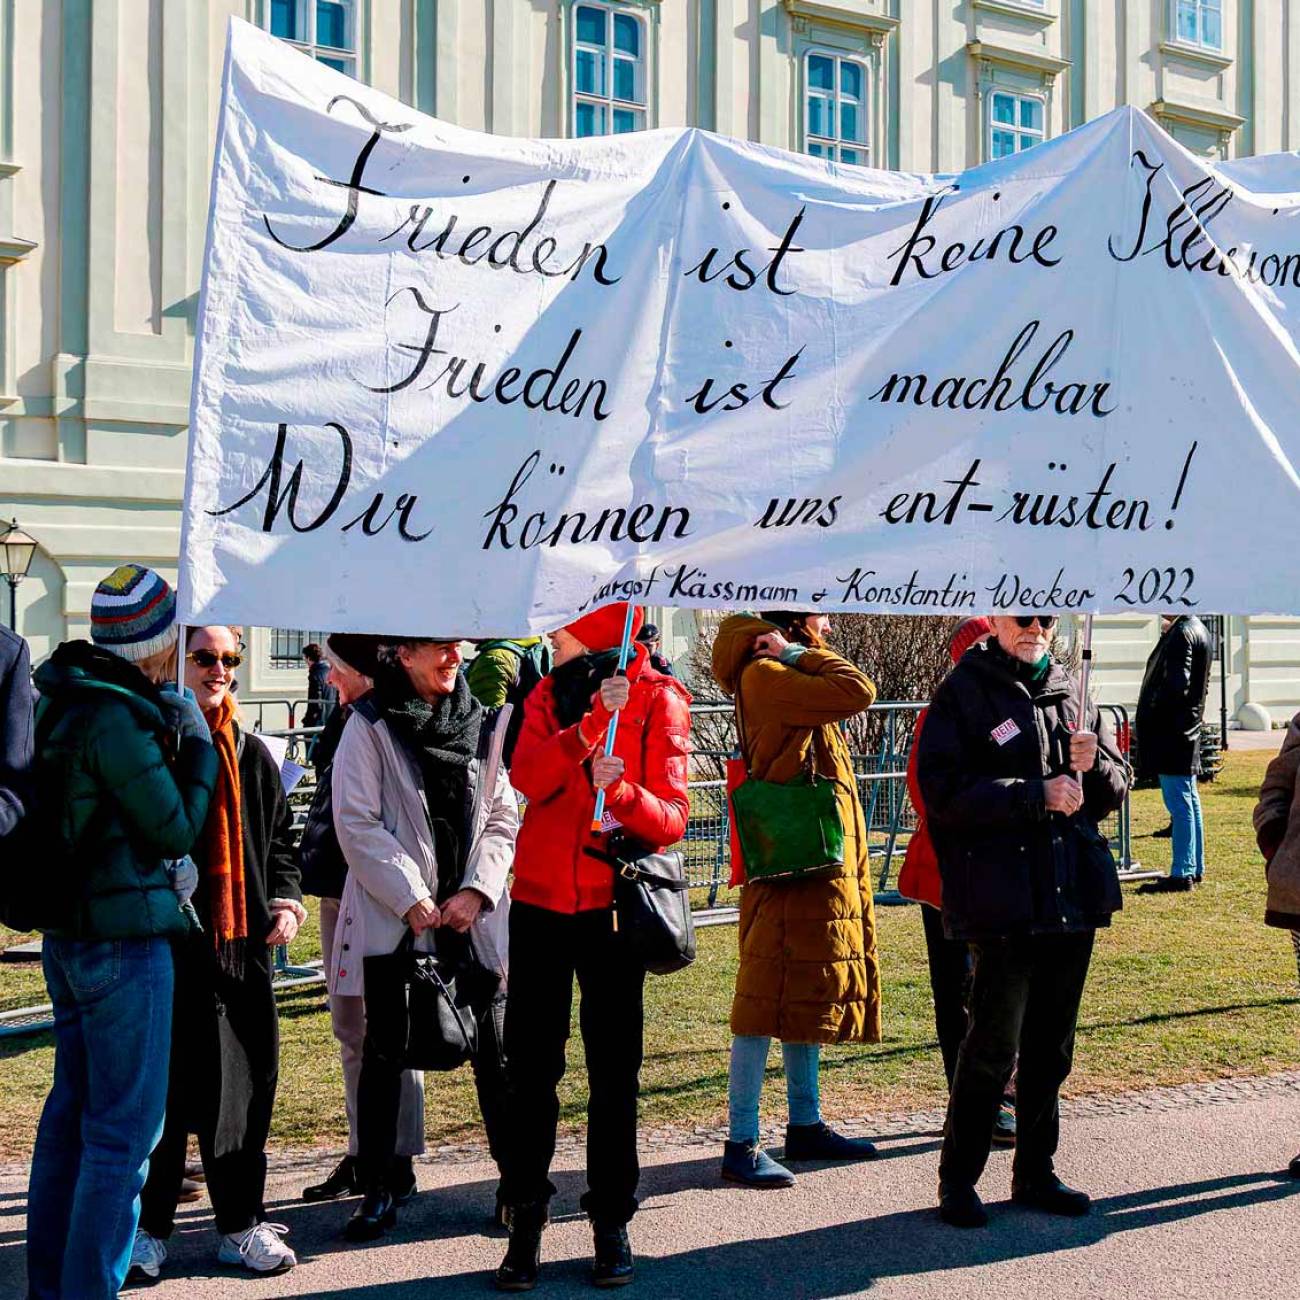 Frieden ist keine Illusion
Frieden ist machbar
Wir können uns ent-rüsten!
Margot Kässmann & Konstantin Wecker 2022
NEIN